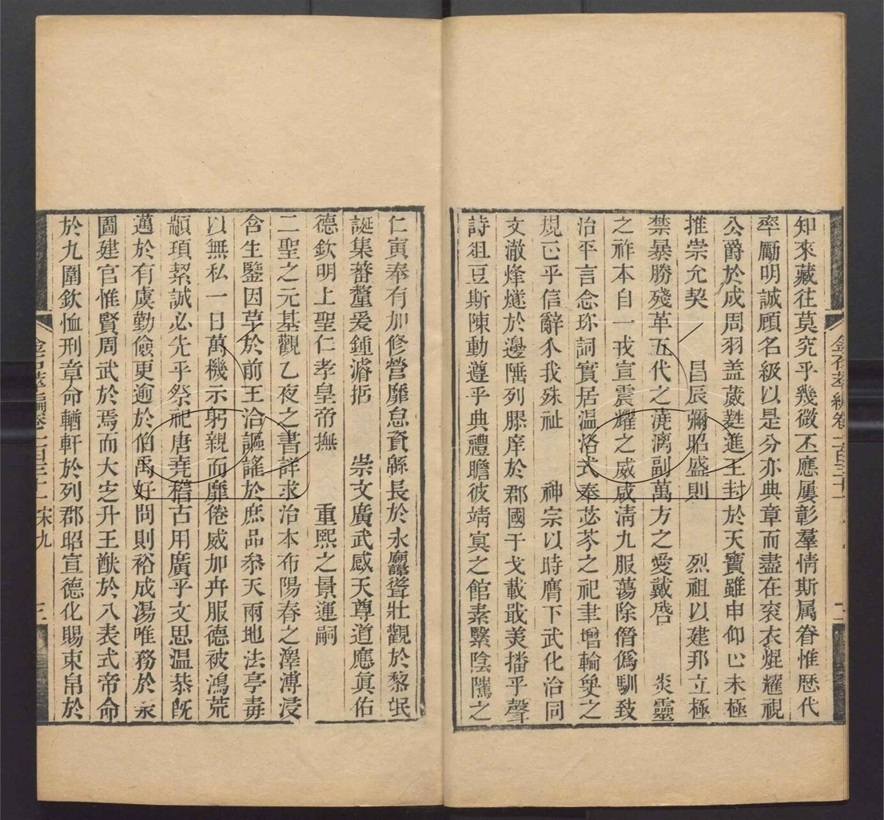 知來藏往莫究乎幾微丕應屢彰羣情斯属眷惟歴代
率勵明誠顧名級以是分亦典章而盡在衮衣焜耀視
公爵於成周羽盖葳蕤進王封於天寳雖申仰止未極
推崇允契　昌辰彌昭盛則　烈祖以建邦立極
禁暴勝殘革五代之澆漓副萬方之愛戴啓　炎靈
之祚本自一戎宣震耀之威咸清九服蕩除僭僞馴致
治平言念珎詞實居温洛式奉苾芬之祀聿增輪奐之
規正乎信辭介我殊祉　神宗以時膺下武化洽同
文澈烽燧於邊陲列膠庠於郡國干戈載戢美播乎聲
詩俎豆斯陳動遵乎典禮瞻彼靖寘之館素繄陰隲之
金石萃編卷一百三十二
仁寅奉有加修營靡怠資緜長於永厯聳壯觀於黎氓
誕集蕃釐爰鍾濬㧞　崇文廣武感天尊道應眞佑
德欽明上聖仁孝皇帝撫　重熙之景運嗣
二聖之元基觀乙夜之書詳求治本布陽春之澤溥浸
含生鑒因革於前王洽謳謠於庶品叅天兩地法亭毒
以無私一日萬機示躬親而靡倦威加卉服德被鴻荒
顓頊絜誠必先乎祭祀唐堯稽古用廣乎文思温恭旣
邁於有虞勤儉更逾於伯禹好問則裕成湯唯務於永
圖建官惟賢周武於焉而大定升王猷於八表式帝命
於九圍欽恤刑章命輶軒於列郡昭宣德化賜束帛於
金石萃編卷一百三十二　宋九　三